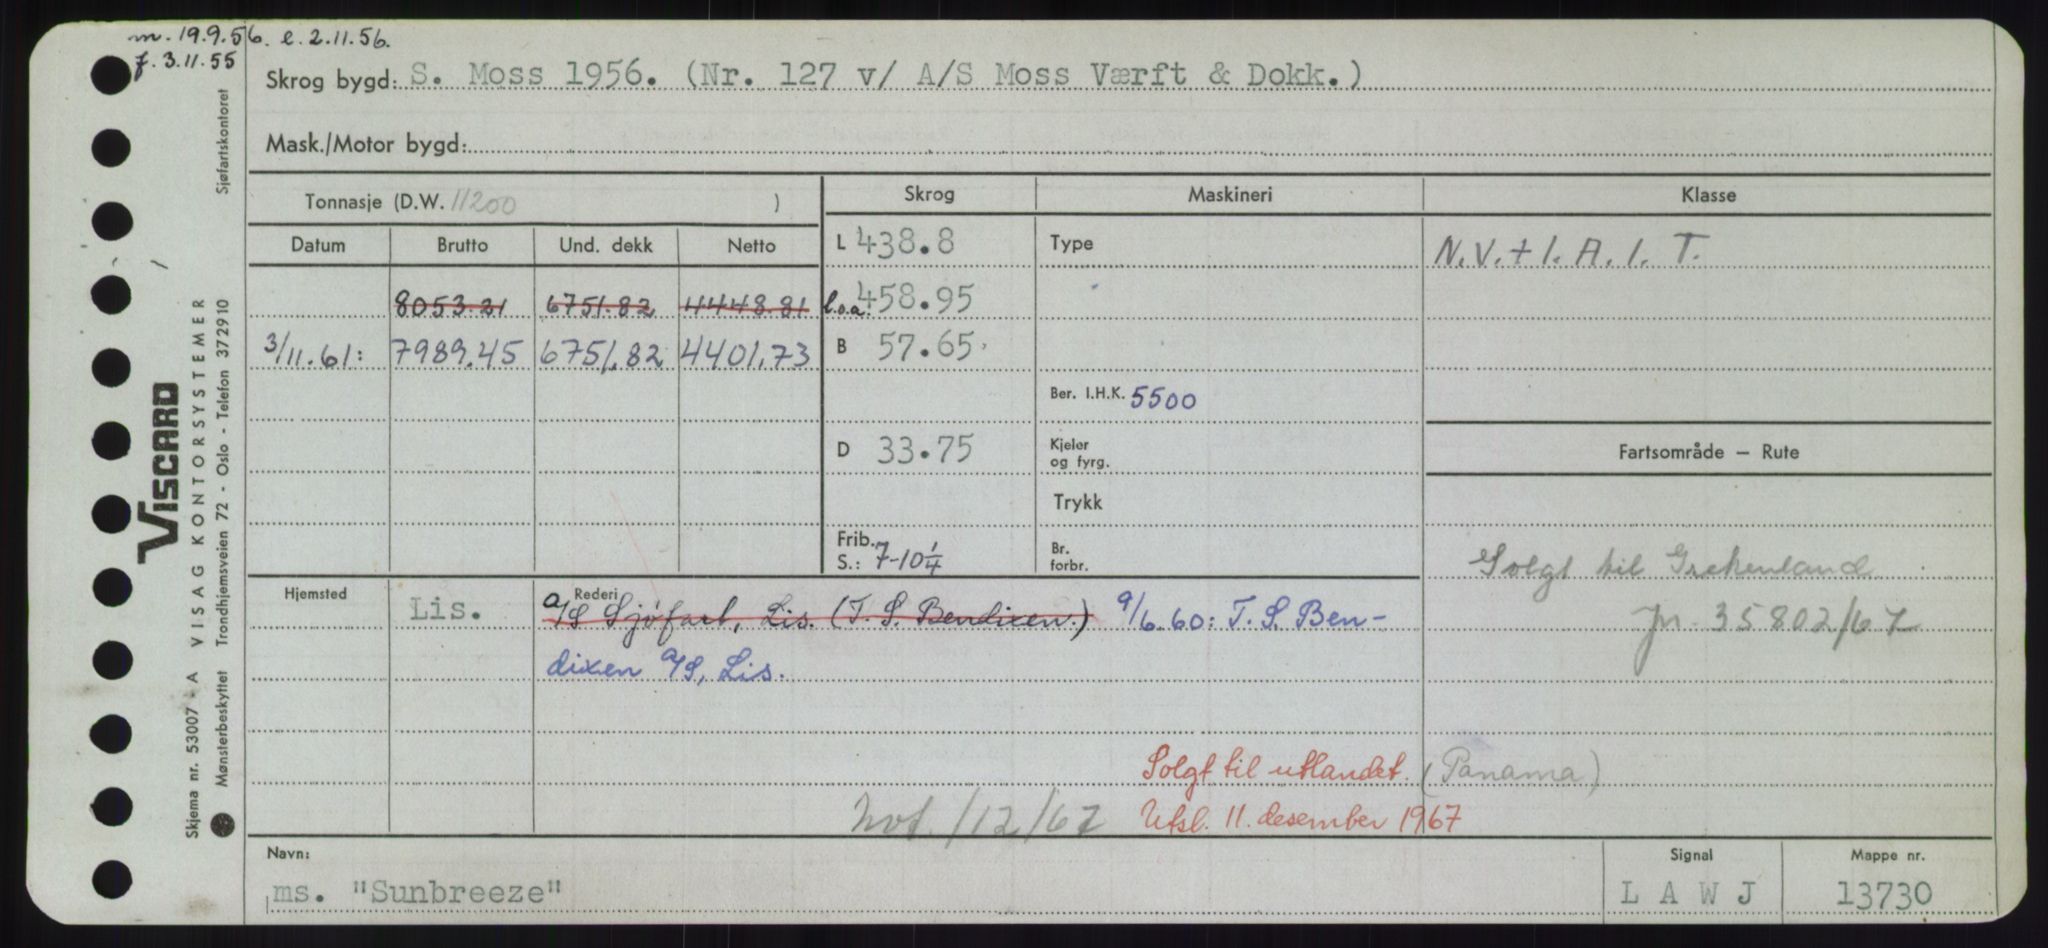 m. 19.9.56. e. 2.11.56.
f. 3.11.55
Skrog bygd: S. Moss 1956. (Nr. 127 v/ A/S Moss Værft & Dokk.)
Mask./Motor bygd:
Tonnasje (D.W. 11200 )
Skrog
Maskineri
Klasse
Datum Brutto Und. dekk Netto
L 438.8
Type
N.V. + 1. A. 1. T.
8053.21 6751.82 4448.81
l.o.a. 458.95
3/11.61: 7989.45 6751.82 4401.73
B 57.65
Ber. I.H.K. 5500
D 33.75
Kjeler
og fyrg.
Fartsområde — Rute
Trykk
Frib.
S.: 7-10 1/4
Br.
forbr.
Solgt til Grekenland
Jn. 35802/67
Hjemsted
Lis.
Rederi
A/S Sjøfart, Lis. (T. S. Bendixen.) 9/6.60: T. S. Ben-
dixen A/S, Lis.
Solgt til utlandet. (Panama)
Not. /12/67 Utsl. 11. desember 1967
Navn:
ms. "Sunbreeze"
Signal
L A W J
Mappe nr.
13730
VISCARD
Skjema nr. 53007 - A VISAG KONTORSYSTEMER
Mønsterbeskyttet Trondhjemsveien 72 - Oslo - Telefon 372910 Sjøfartskontoret